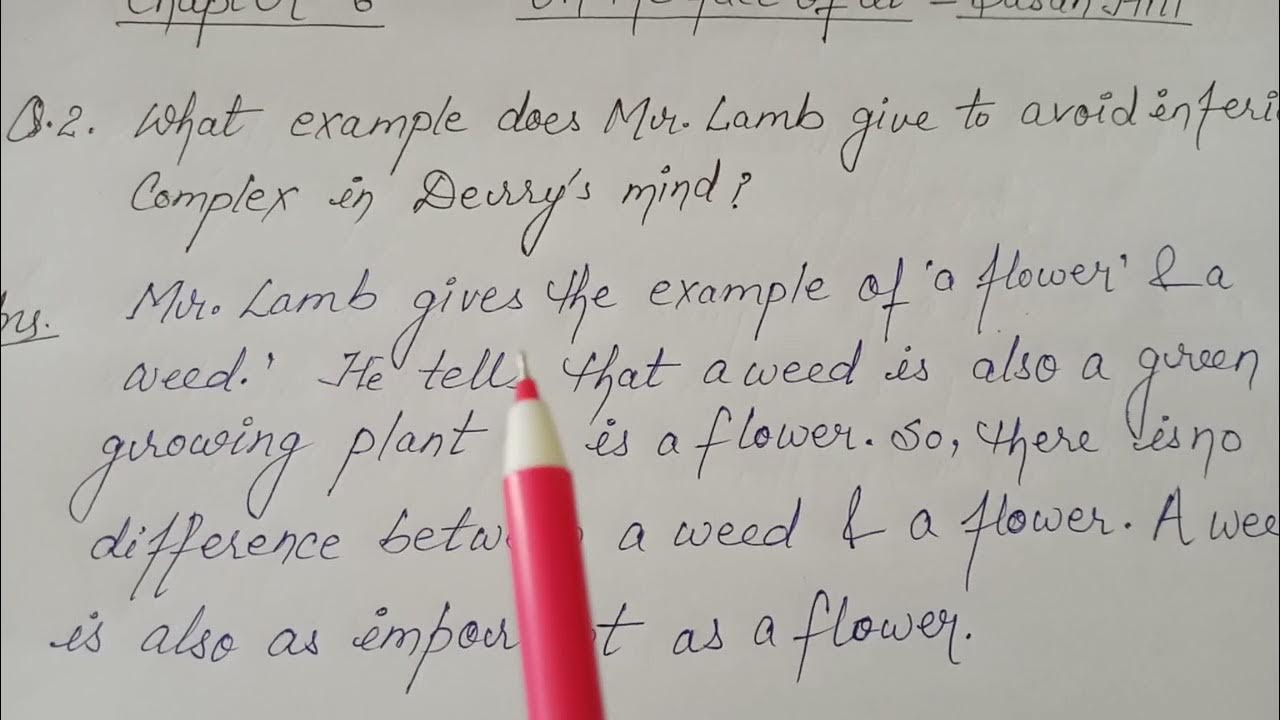 Chapter 6 On the face of it - Susan Hill
Q.2. What example does Mr. Lamb give to avoid inferi
Complex in Derry's mind?
Mr. Lamb gives the example of 'a flower' & a
weed.' He tells that a weed is also a green
growing plant is a flower. So, there is no
difference betw a weed & a flower. A wee
is also as impor t as a flower.